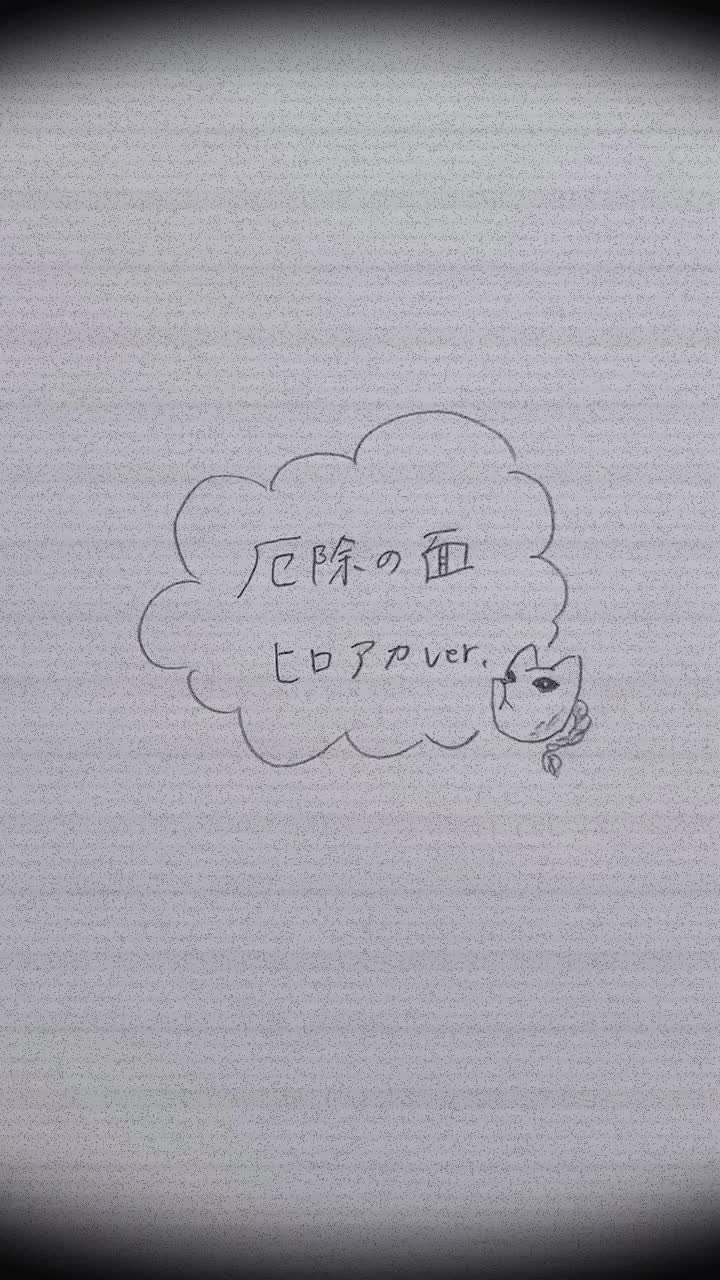 厄除の面
ヒロアカver.